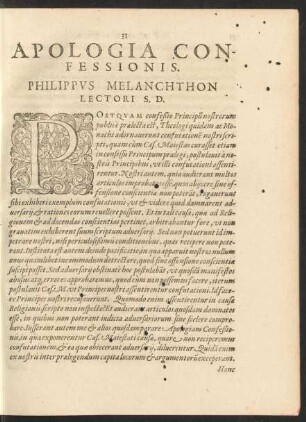 APOLOGIA CON-
FESSIONIS.
PHILIPPVS MELANCHTHON
LECTORI S. D.
POSTQVAM confessio Principū nostrorum
publicè prælecta est, Theologi quidam ac Mo-
nachi adornauerunt confutationē nostri scrip-
ti, quam cùm Cæs. Maiestas curasset etiam
in consessu Principum prælegi, postulauit à no-
stris Principibus, vt illi confutationi assenti-
rentur. Nostri autem, quia audierant multos
articulos improbatos esse, quos abijcere sine of-
fensione conscientiæ non poterāt, rogauerunt
sibi exhiberi exemplum confutationis, vt & videre quid damnarent aduer-
sarij, & rationes eorum refellere possent. Et in tali causa, quæ ad Reli-
gionem & ad docendas conscientias pertinet, arbitrabantur fore, vt non
grauatim exhiberent suum scriptum aduersarij. Sed non potuerunt id im-
petrare nostri, nisi periculosissimis conditionibus, quas recipere non pote-
rant. Instituta est autem deinde pacificatio, in qua apparuit nostros nullum
onus quamlibet incommodum detrectare, quod sine offensione conscientiæ
suscipi posset. Sed aduersarij obstinatè hoc postulabāt, vt quosdā manifestos
abusus atq; errores approbaremus, quod cùm non possemus facere, iterum
postulauit Cæs. M. vt Principes nostri assentirentur confutationi. Id face-
re Principes nostri recusauerunt. Quomodo enim assentirentur in causa
Religionis scripto non inspecto? Et audierant articulos quosdam damnatos
esse, in quibus non poterant iudicia aduersariorum sine scelere compro-
bare. Iusserant autem me & alios quosdam parare Apologiam Confessio-
nis, in qua exponerentur Cæs. Maiestati causæ, quare non reciperemus
confutationem, & ea quæ obiecerant aduersarij, diluerentur. Quidā enim
ex nostris inter prælegendum capita locorum & argumentorū exceperant.
Hanc